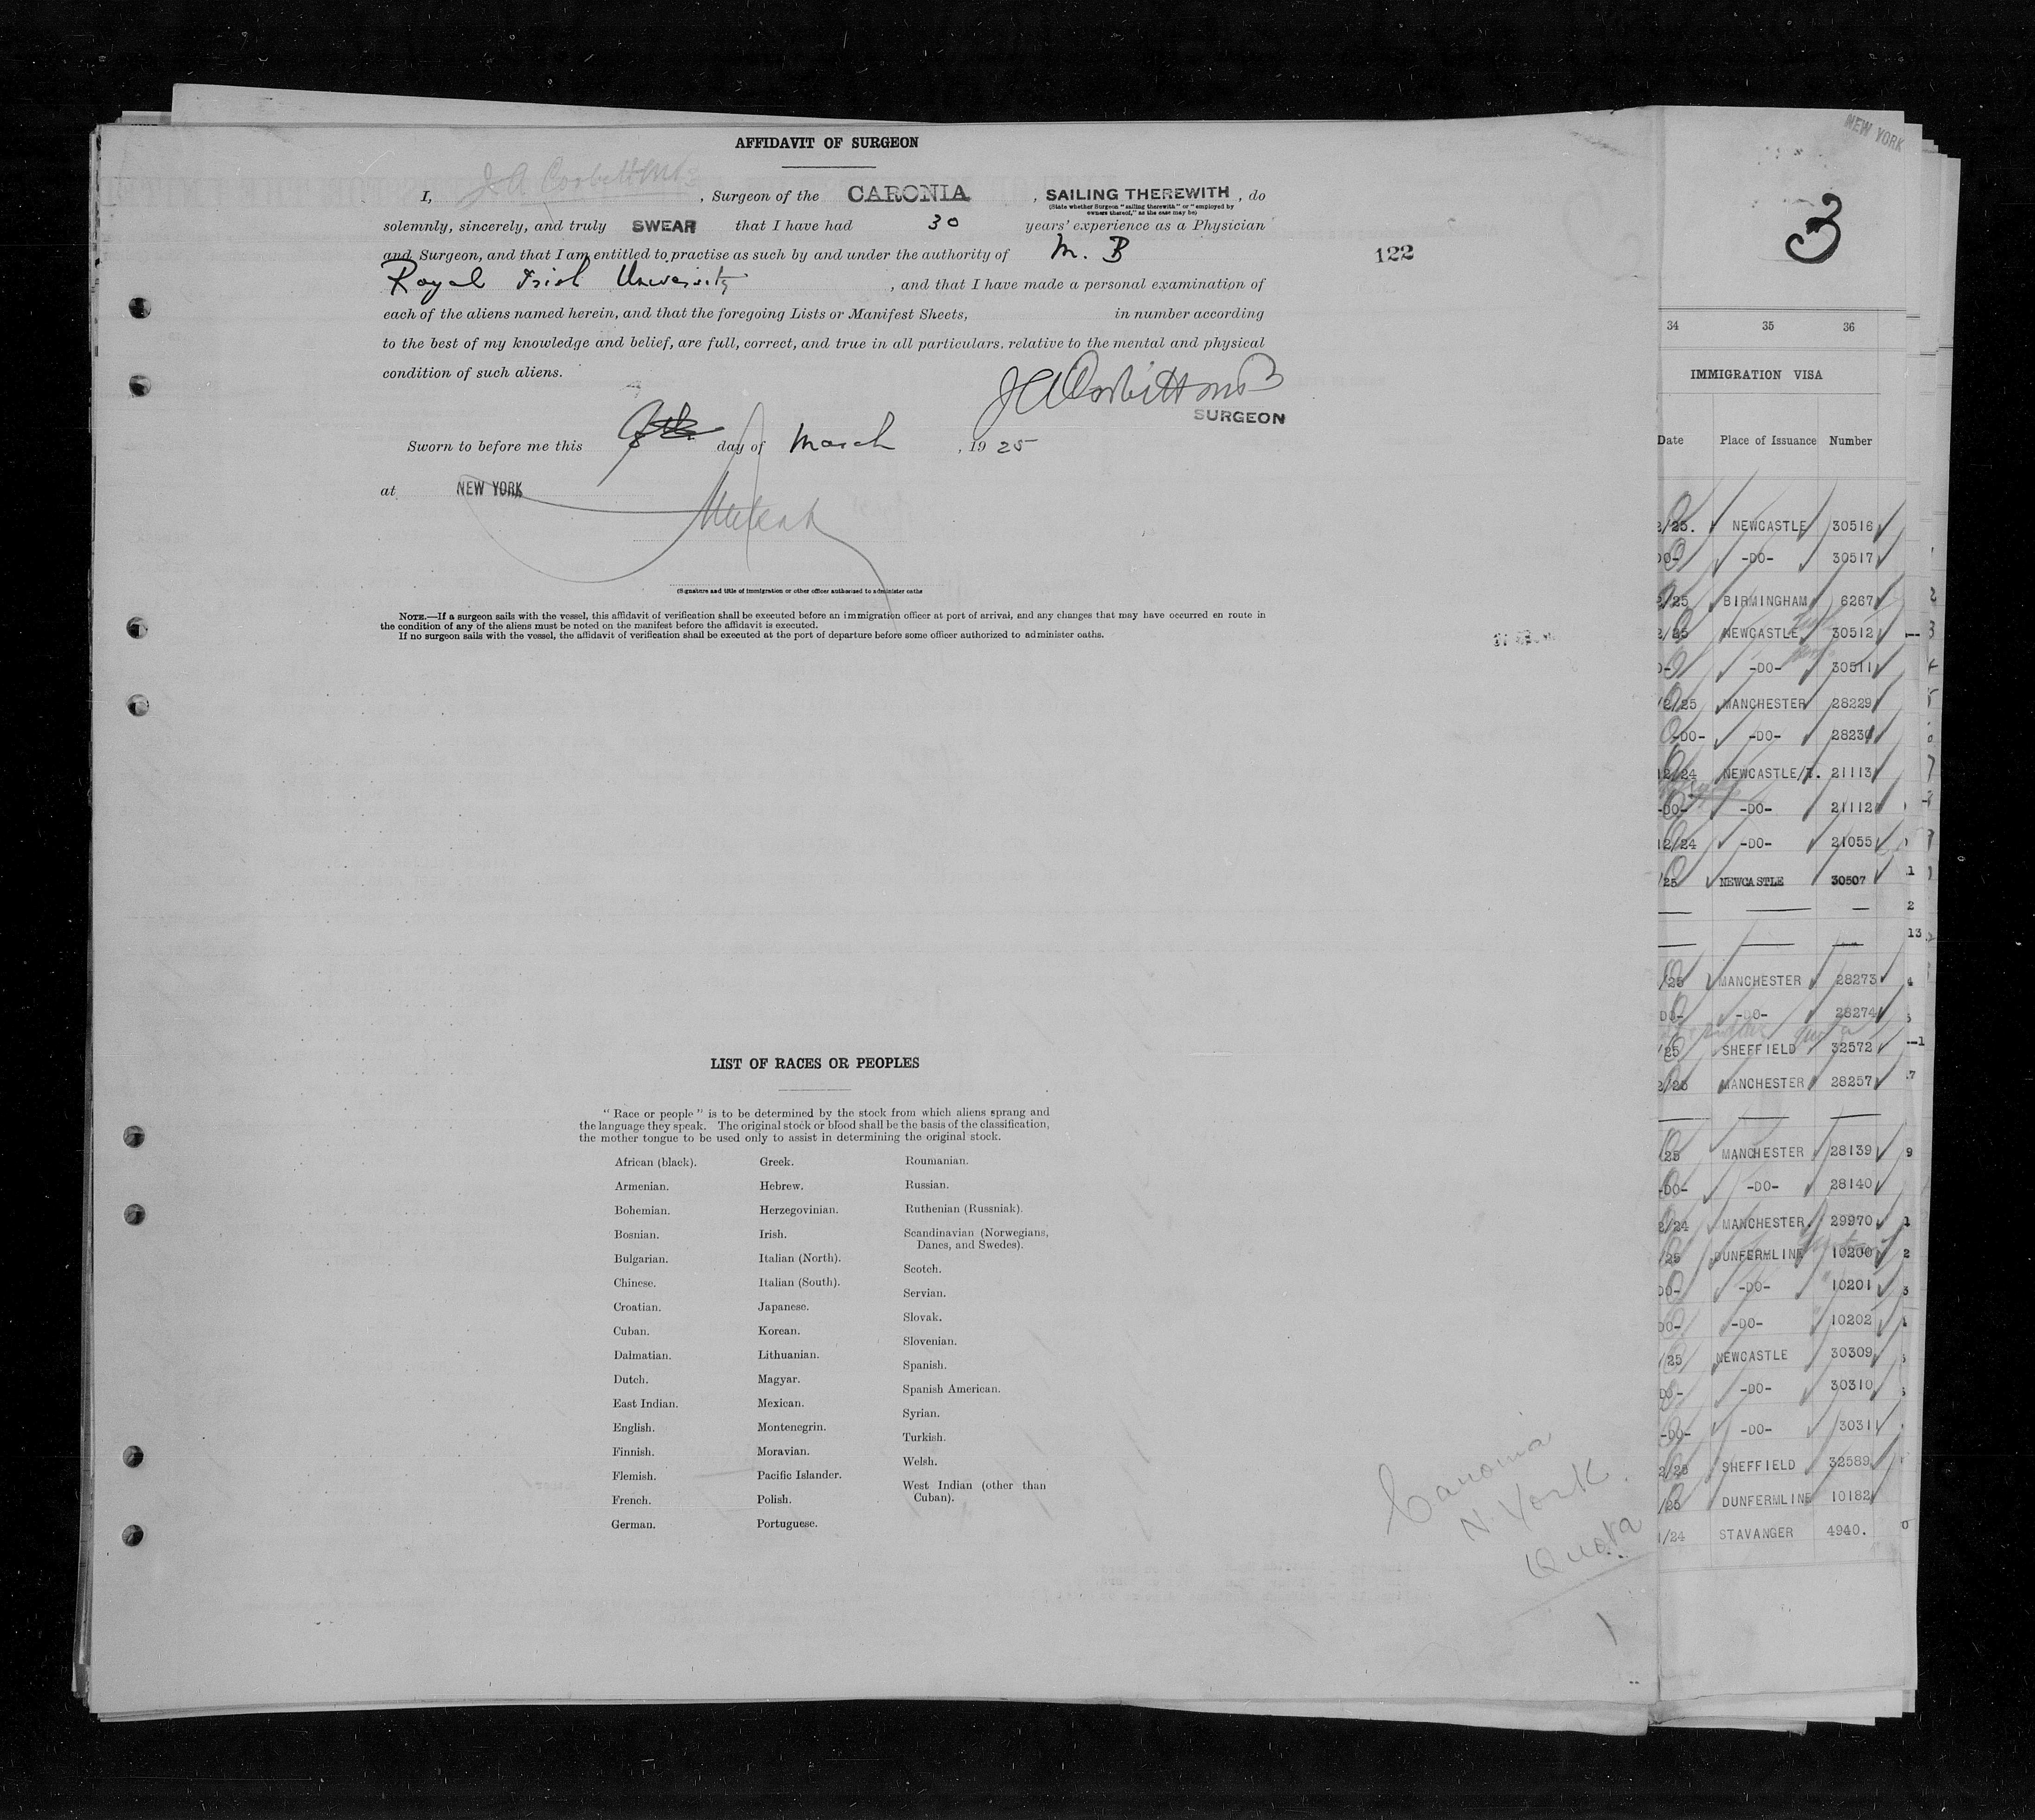 AFFIDAVIT OF SURGEON
I, J A Corbett MB, Surgeon of the CARONIA, SAILING THEREWITH, do
(State whether Surgeon "sailing therewith" or "employed by
owners thereof," as the case may be)
solemnly, sincerely, and truly SWEAR that I have had 30 years' experience as a Physician
and Surgeon, and that I am entitled to practise as such by and under the authority of M. B
Royal Irish University, and that I have made a personal examination of
each of the aliens named herein, and that the foregoing Lists or Manifest Sheets, in number according
to the best of my knowledge and belief, are full, correct, and true in all particulars, relative to the mental and physical
condition of such aliens.
J A Corbett MB
SURGEON
Sworn to before me this day of March, 19 25
at NEW YORK
(Signature and title of immigration or other officer authorized to administer oaths
NOTE.—If a surgeon sails with the vessel, this affidavit of verification shall be executed before an immigration officer at port of arrival, and any changes that may have occurred en route in
the condition of any of the aliens must be noted on the manifest before the affidavit is executed.
If no surgeon sails with the vessel, the affidavit of verification shall be executed at the port of departure before some officer authorized to administer oaths.
122
LIST OF RACES OR PEOPLES
"Race or people" is to be determined by the stock from which aliens sprang and
the language they speak. The original stock or blood shall be the basis of the classification,
the mother tongue to be used only to assist in determining the original stock.
African (black).
Armenian.
Bohemian.
Bosnian.
Bulgarian.
Chinese.
Croatian.
Cuban.
Dalmatian.
Dutch.
East Indian.
English.
Finnish.
Flemish.
French.
German.
Greek.
Hebrew.
Herzegovinian.
Irish.
Italian (North).
Italian (South).
Japanese.
Korean.
Lithuanian.
Magyar.
Mexican.
Montenegrin.
Moravian.
Pacific Islander.
Polish.
Portuguese.
Roumanian.
Russian.
Ruthenian (Russniak).
Scandinavian (Norwegians,
Danes, and Swedes).
Scotch.
Servian.
Slovak.
Slovenian.
Spanish.
Spanish American.
Syrian.
Turkish.
Welsh.
West Indian (other than
Cuban).
Caronia
N. York
Quota
NEW YORK
3
34 35 36
IMMIGRATION VISA
Date Place of Issuance Number
2/25. NEWCASTLE 30516
DO- -DO- 30517
2/25 BIRMINGHAM 6267
2/25 NEWCASTLE 30512
O- -DO- 30511
/2/25 MANCHESTER 28229
-DO- -DO- 28230
12/24 NEWCASTLE/T. 21113
-DO- -DO- 21112
12/24 -DO- 21055
/25 NEWCASTLE 30507
/25 MANCHESTER 28273
DO- -DO- 28274
/25 SHEFFIELD 32572
2/25 MANCHESTER 28257
/25 MANCHESTER 28139
-DO- -DO- 28140
2/24 MANCHESTER. 29970
/25 DUNFERMLINE 10200
DO- -DO- 10201
DO- -DO- 10202
/25 NEWCASTLE 30309
DO- -DO- 30310
-DO- -DO- 30311
2/25 SHEFFIELD 32589
/25 DUNFERMLINE 10182
1/24 STAVANGER 4940.